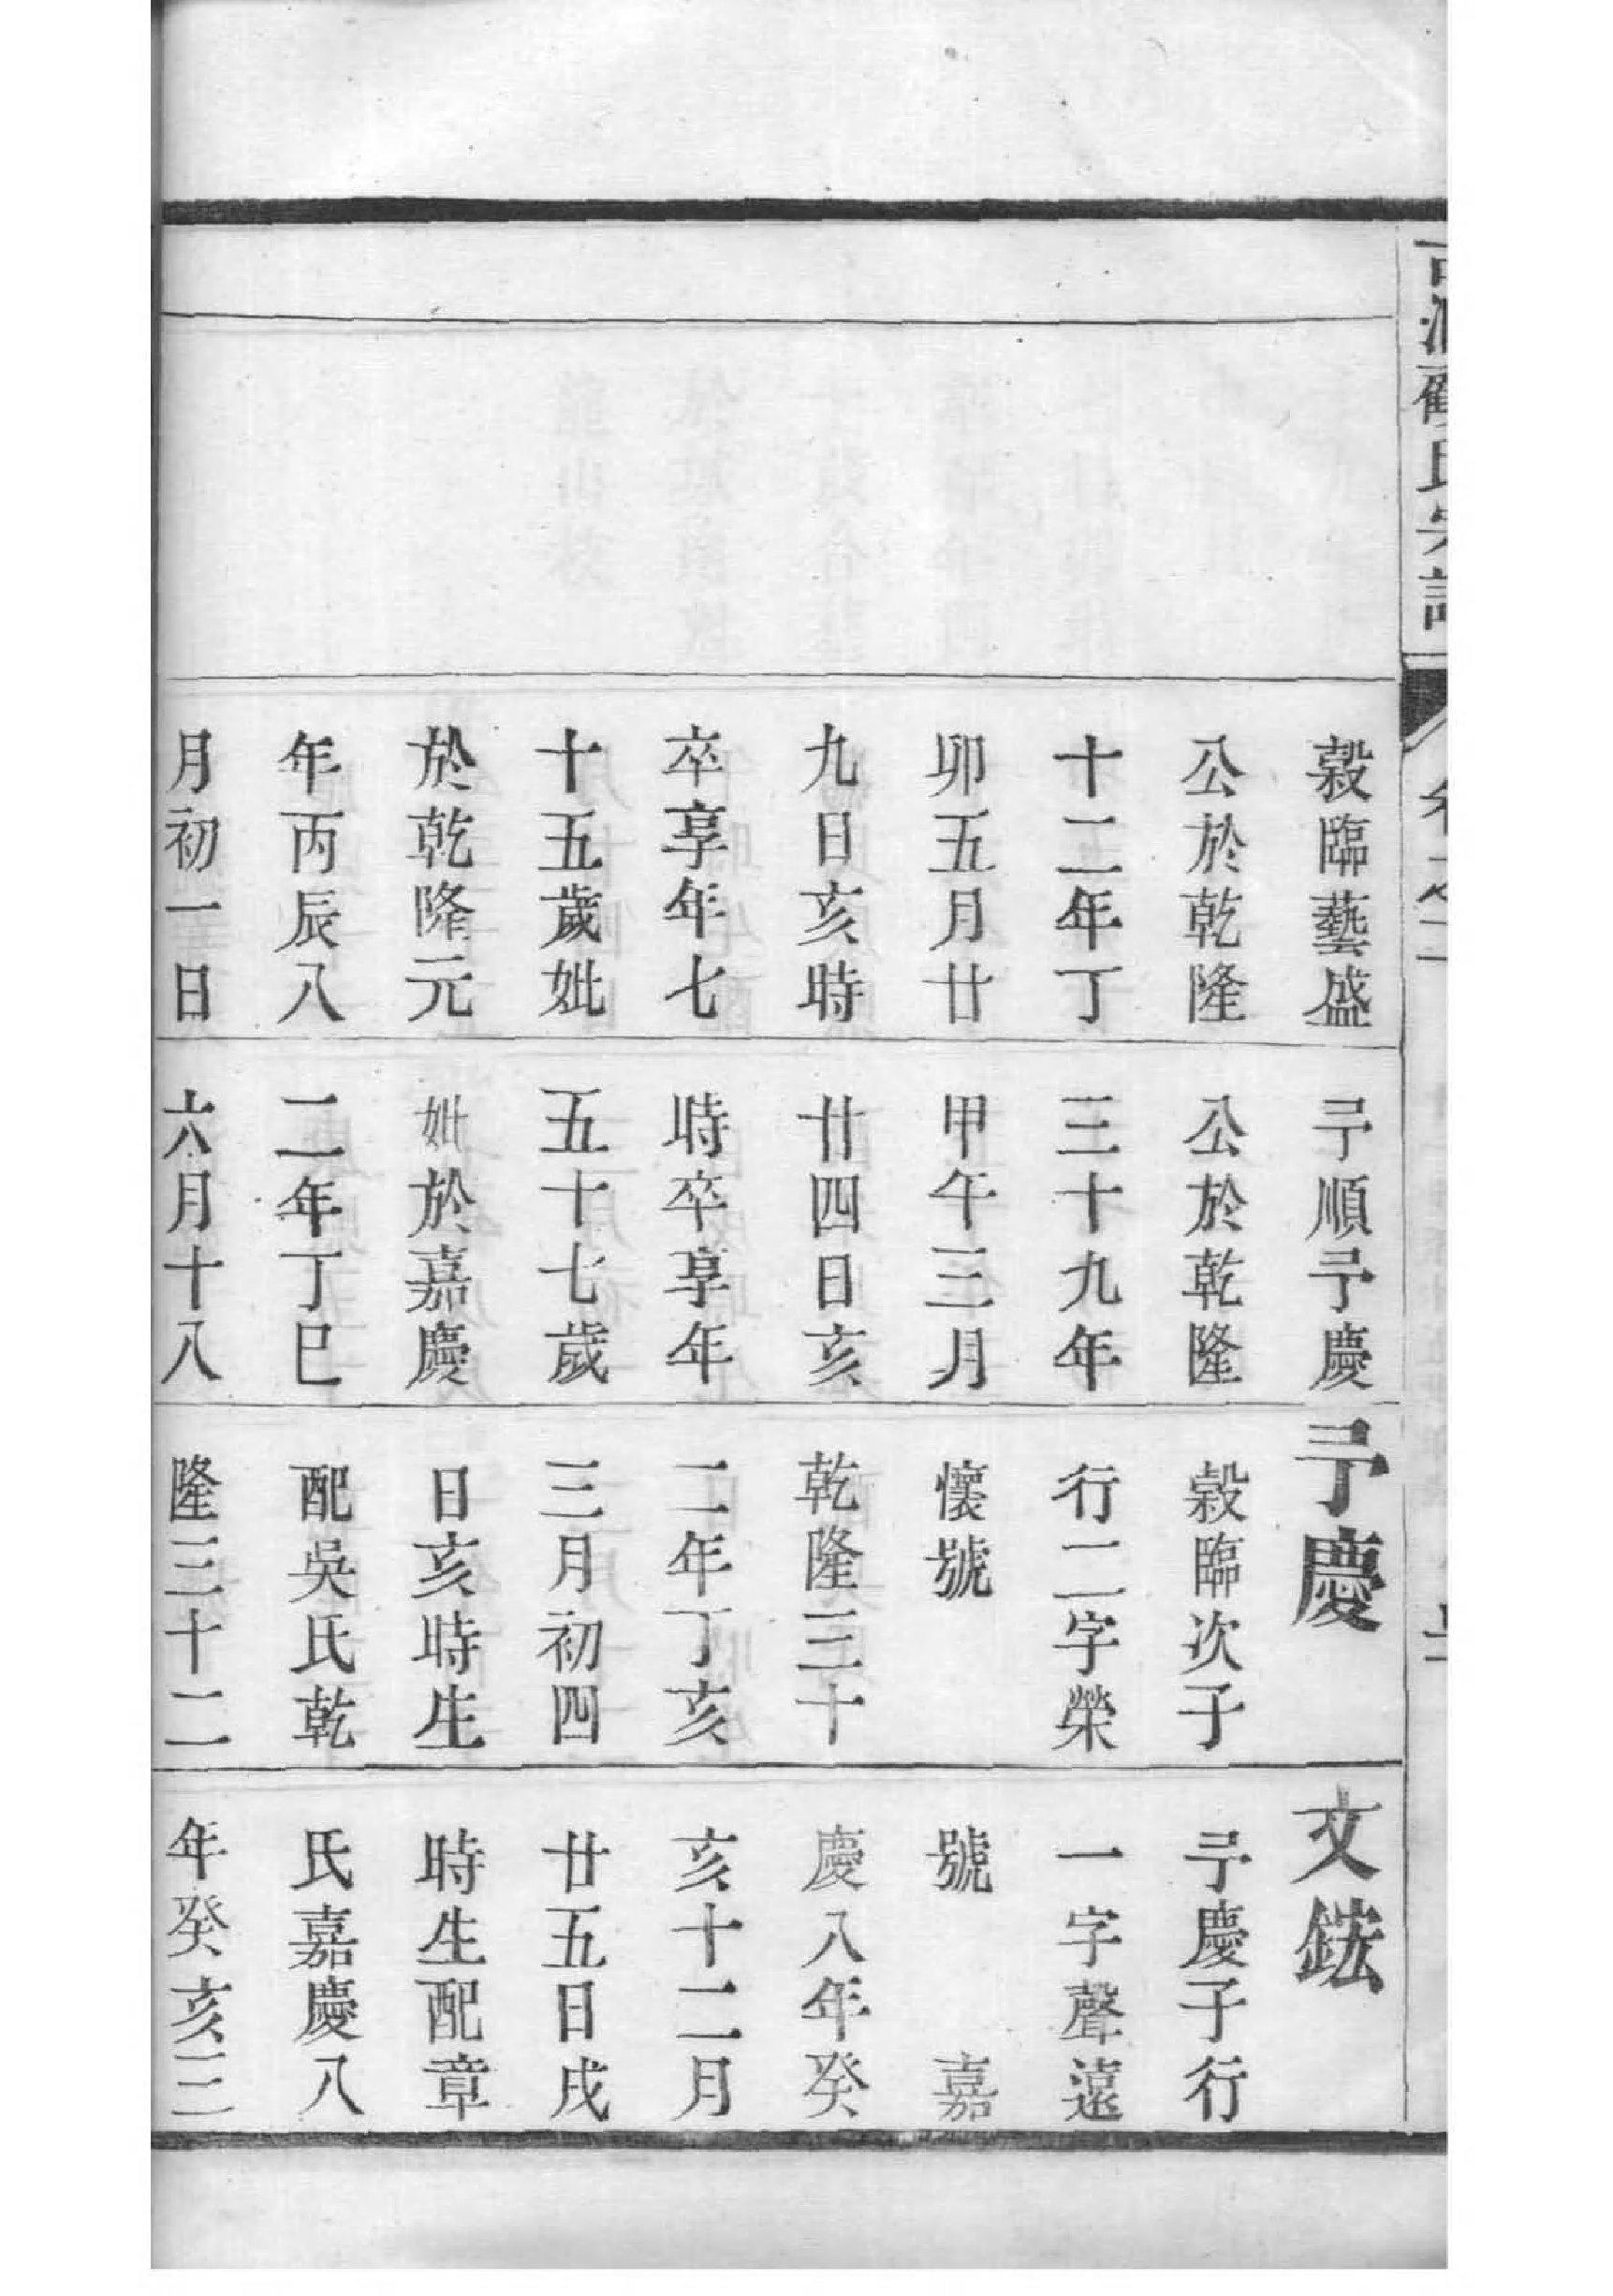 氏宗譜
卷之二
榖臨藝盛
公於乾隆
十二年丁
卯五月廿
九日亥時
卒享年七
十五歲妣
於乾隆元
年丙辰八
月初一日
予順予慶
公於乾隆
三十九年
甲午三月
廿四日亥
時卒享年
五十七歲
妣於嘉慶
二年丁巳
六月十八
予慶
榖臨次子
行二字榮
懷號
乾隆三十
二年丁亥
三月初四
日亥時生
配吳氏乾
隆三十二
文鈜
予慶子行
一字聲遠
號 嘉
慶八年癸
亥十二月
廿五日戌
時生配章
氏嘉慶八
年癸亥三